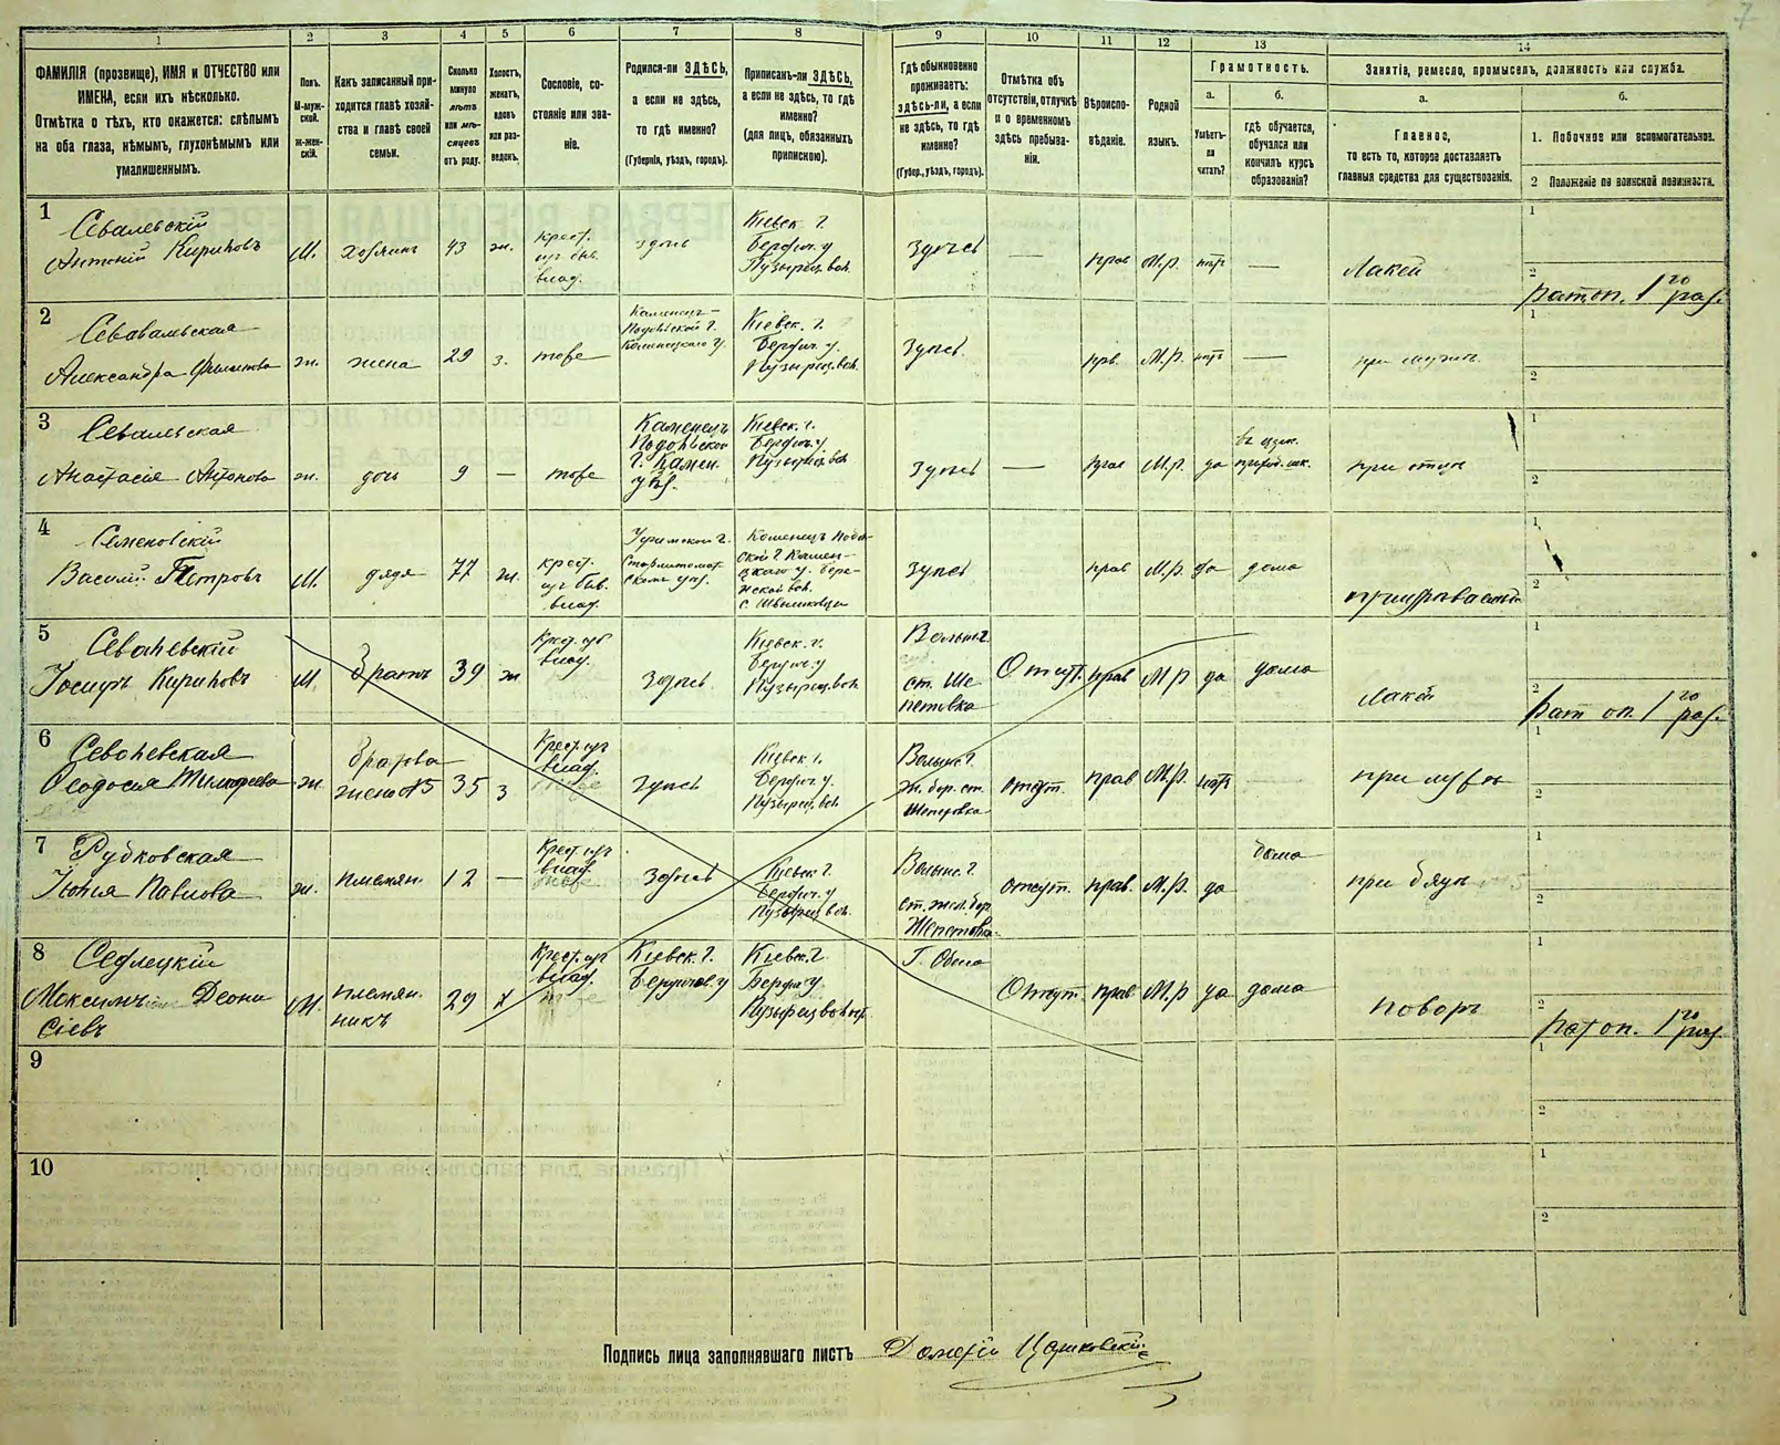 1
2
3
4
5
6
7
8
9
10
11
12
13
14
ФАМИЛІЯ (прозвище), ИМЯ и ОТЧЕСТВО или
ИМЕНА, если ихъ нѣсколько.
Отмѣтка о тѣхъ, кто окажется: слѣпымъ
на оба глаза, нѣмымъ, глухонѣмымъ или
умалишеннымъ.
Полъ.
М-муж-
ской.
ж-жен-
скій.
Какъ записанный при-
ходится главѣ хозяй-
ства и главѣ своей
семьи.
Сколько
минуло
лѣтъ
или мѣ-
сяцевъ
отъ роду.
Холостъ,
женатъ,
вдовъ
или раз-
веденъ.
Сословіе, со-
стояніе или зва-
ніе.
Родился-ли ЗДѢСЬ,
а если не здѣсь,
то гдѣ именно?
(Губернія, уѣздъ, городъ).
Приписанъ-ли ЗДѢСЬ,
а если не здѣсь, то гдѣ
именно?
(для лицъ, обязанныхъ
припискою).
Гдѣ обыкновенно
проживаетъ:
здѣсь-ли, а если
не здѣсь, то гдѣ
именно?
(Губер., уѣздъ, городъ).
Отмѣтка объ
отсутствіи, отлучкѣ
и о временномъ
здѣсь пребыва-
ніи.
Вѣроиспо-
вѣданіе.
Родной
языкъ.
Грамотность.
а.
Умѣетъ-
ли
читать?
б.
гдѣ обучается,
обучался или
кончилъ курсъ
образованія?
Занятія, ремесло, промыселъ, должность или служба.
а.
Главное,
то есть то, которое доставляетъ
главныя средства для существованія.
б.
1. Побочное или вспомогательное.
2 Положеніе по воинской повинности.
1
Антоній Кириловъ
М.
хозяинъ
43
ж.
крест.
влад.
здѣсь
Кіевск. г.
Бердич. у
Пузырец. вол.
здѣсь
прав
М.р.
нѣтъ
Лакей
1
2
рат. оп. 1го раз.
2
Александра
ж.
жена
29
з.
тоже
Каменецъ-
Подольской г.
Каменецкаго у.
Кіевск. г.
Бердич. у.
Пузырец. вол.
здѣсь
прв.
М.р.
нѣтъ
при мужѣ
1
2
3
Севальская
Анастасія Антонова
ж.
дочь
9
—
тоже
Каменецъ
Подольской
г. Камен.
уѣз.
Кіевск. г.
Бердич. у
Пузырец. вол
здѣсь
—
прав
М.р.
да
при отцѣ
1
2
4
Семеновскій
Василій Петровъ
М.
дядя
77
крест.
из быв.
влад.
здѣсь
прав
М.р.
да
дома
1
2
5
Севалевскій
Іосифъ Кириловъ
М
братъ
39
ж
Крест. изъ
влад.
здѣсь
Кіевск. г.
Бердич. у
Пузырец. вол.
Волынс. г.
ст. Ше-
петовка
Отсут.
прав
М р
да
дома
Лакей
1
2
рат оп. 1го раз.
6
Севолевская
Ѳеодосія Тимофеева
ж.
братова
жена №5
35
з
Крест. изъ
влад.
здѣсь
Кіевск. г.
Бердич. у.
Пузырец. вол.
Волынс. г.
ж. дор. ст.
Шепетовка
отсут.
прав
М.р.
нѣтъ
при мужѣ
1
2
7
Рудковская
Юлія Павлова
ж.
племян.
12
—
Крест. изъ
влад.
здѣсь
Кіевск. г.
Бердич. у
Пузырец. вол.
Волынс. г.
ст. жел. дор.
Шепетовка
отсут.
прав.
М.р.
да
дома
при дядѣ
1
2
8
Седлецкій
Максимъ Деони
сіевъ
М.
племян.
никъ
29
х
Крест. изъ
влад.
Кіевск. г.
Бердичев. у
Кіевск. г.
Бердич. у.
Г. Одеса
Отсут.
прав
М.р
да
дома
поваръ
1
2
рат оп. 1го раз.
9
1
2
10
1
2
Подпись лица заполнявшаго листъ